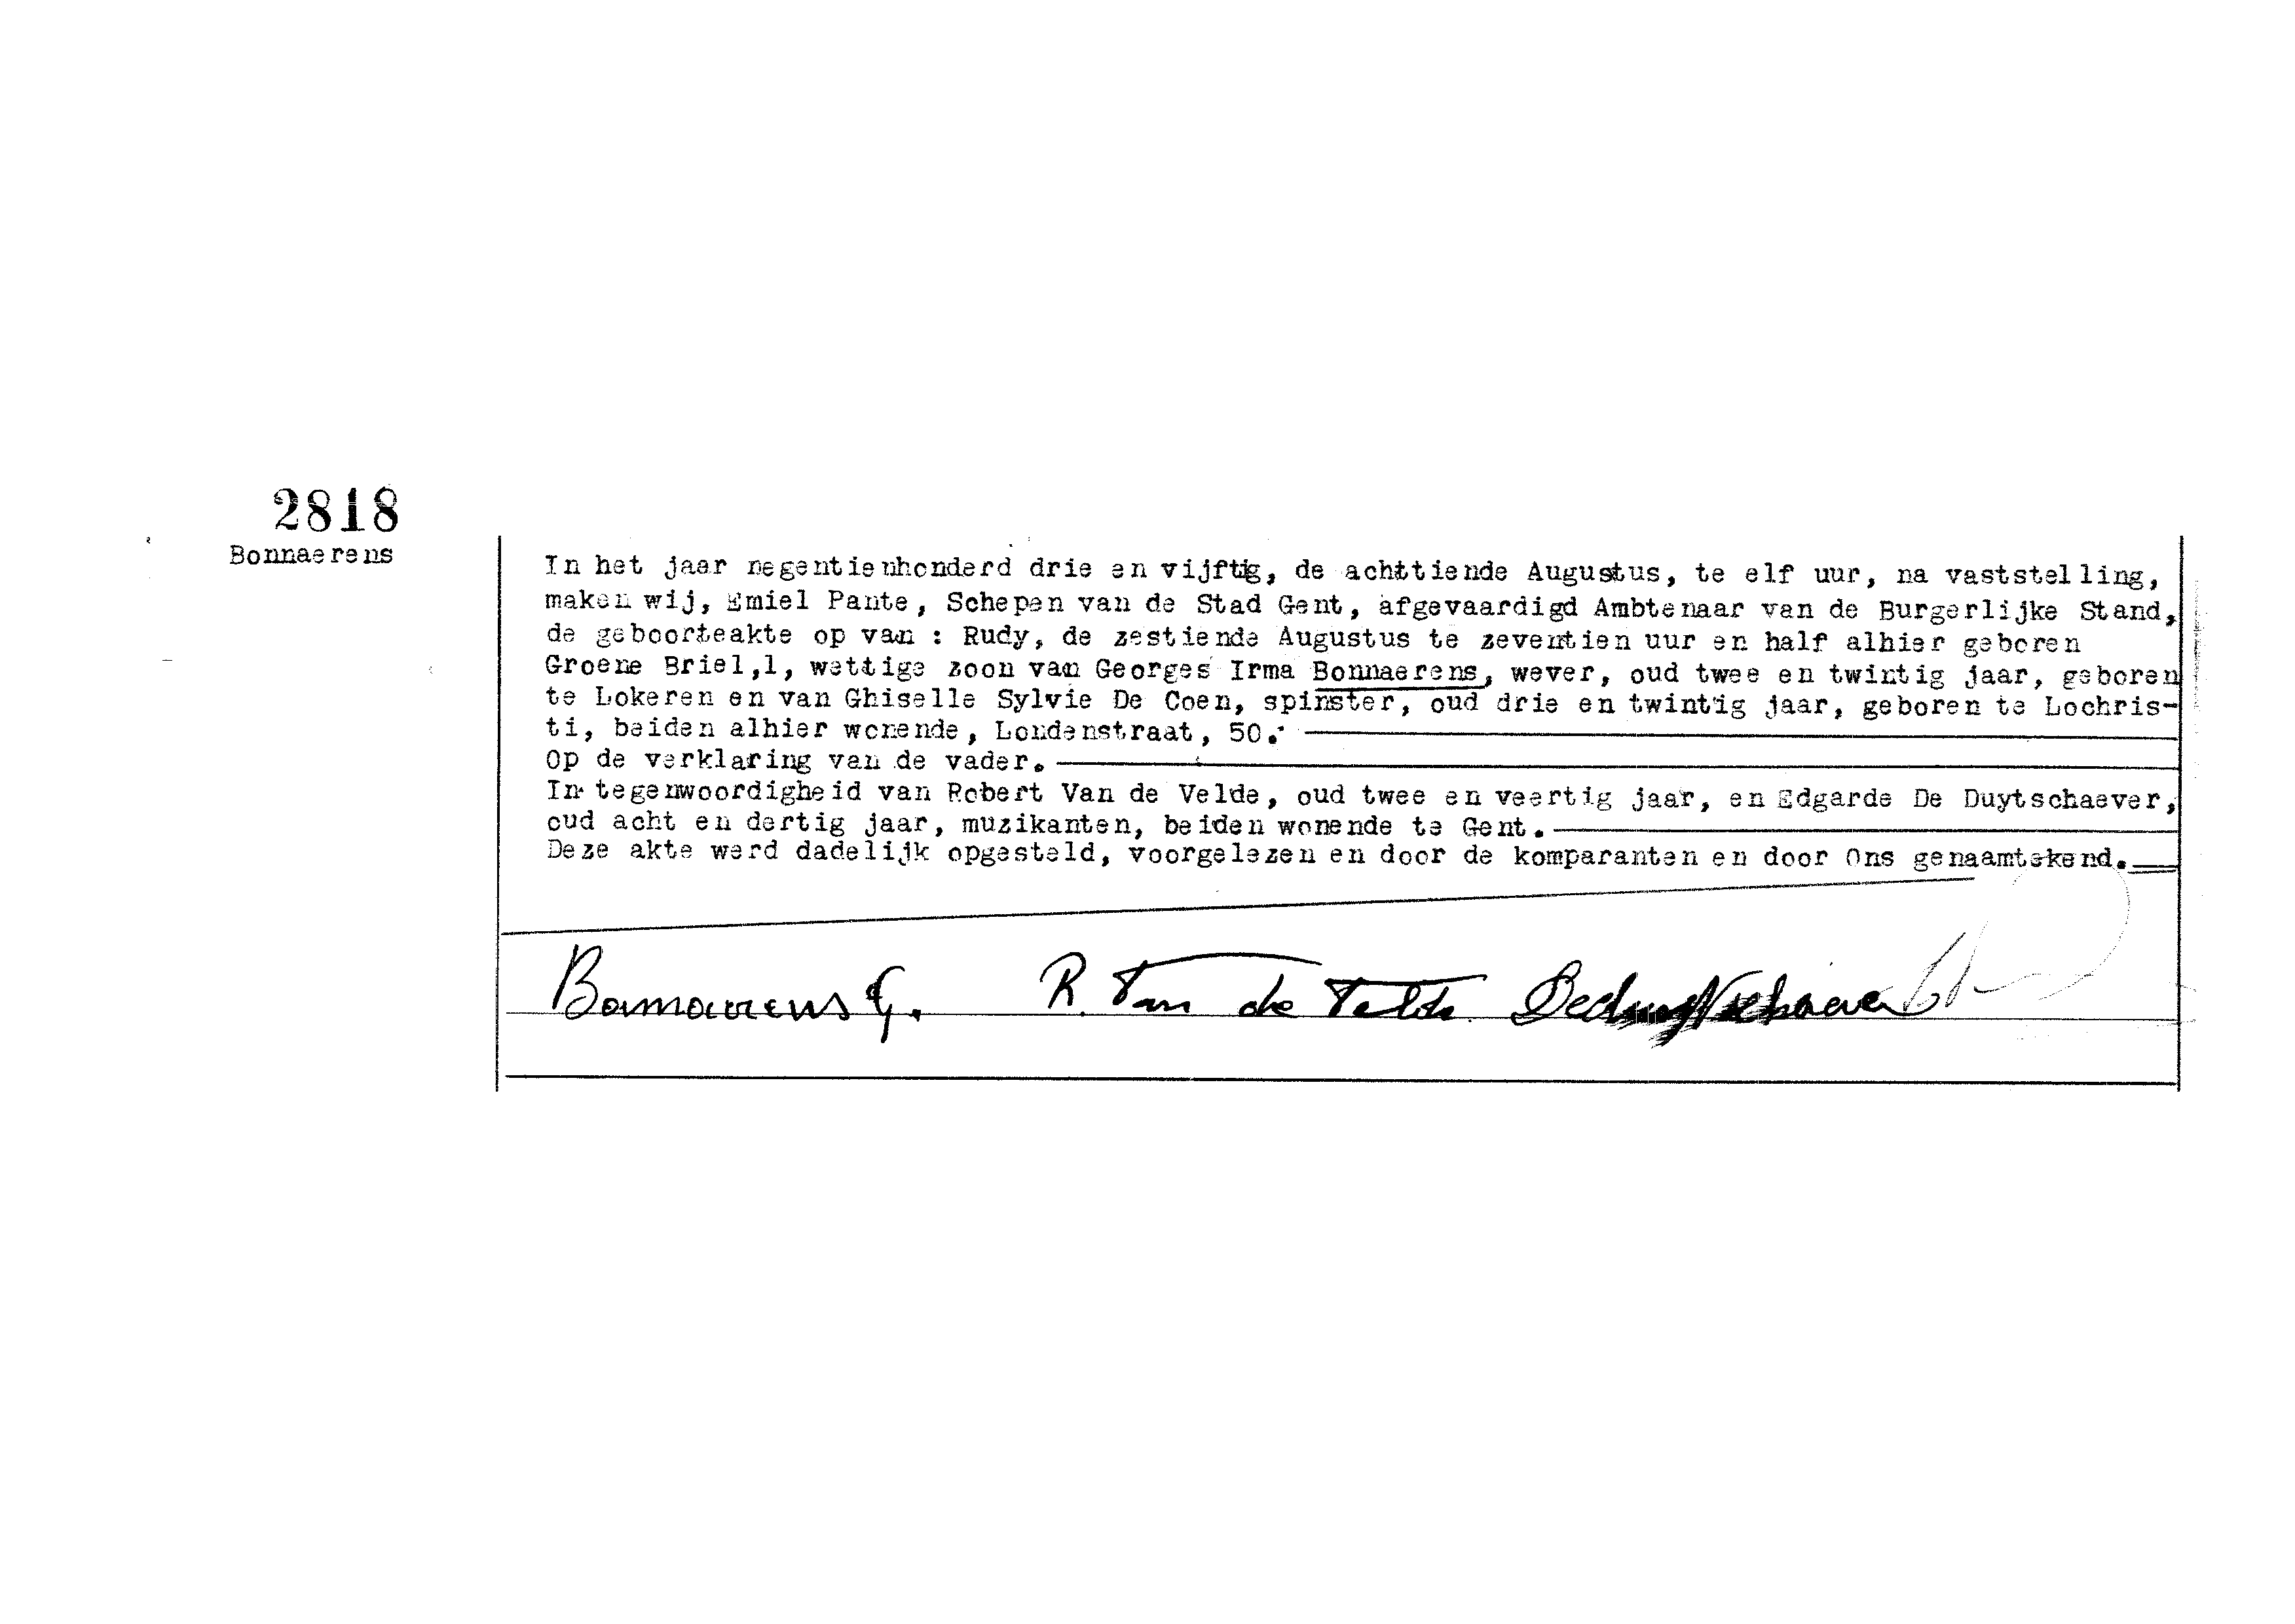 2818
Bonnaerens
In het jaar negentienhonderd drie en vijftig, de achttiende Augustus, te elf uur, na vaststelling,
maken wij, Emiel Pante, Schepen van de Stad Gent, afgevaardigd Ambtenaar van de Burgerlijke Stand,
de geboorteakte op van : Rudy, de zestiende Augustus te zeventien uur en half alhier geboren
Groene Briel,1, wettige zoon van Georges Irma Bonnaerens, wever, oud twee en twintig jaar, geboren
te Lokeren en van Ghiselle Sylvie De Coen, spinster, oud drie en twintig jaar, geboren te Lochris-
ti, beiden alhier wonende, Londenstraat, 50.
Op de verklaring van de vader.
In tegenwoordigheid van Robert Van de Velde, oud twee en veertig jaar, en Edgarde De Duytschaever,
oud acht en dertig jaar, muzikanten, beiden wonende te Gent.
Deze akte werd dadelijk opgesteld, voorgelezen en door de komparanten en door Ons genaamtekend.
Bonnaerens G. R. Van de Velde